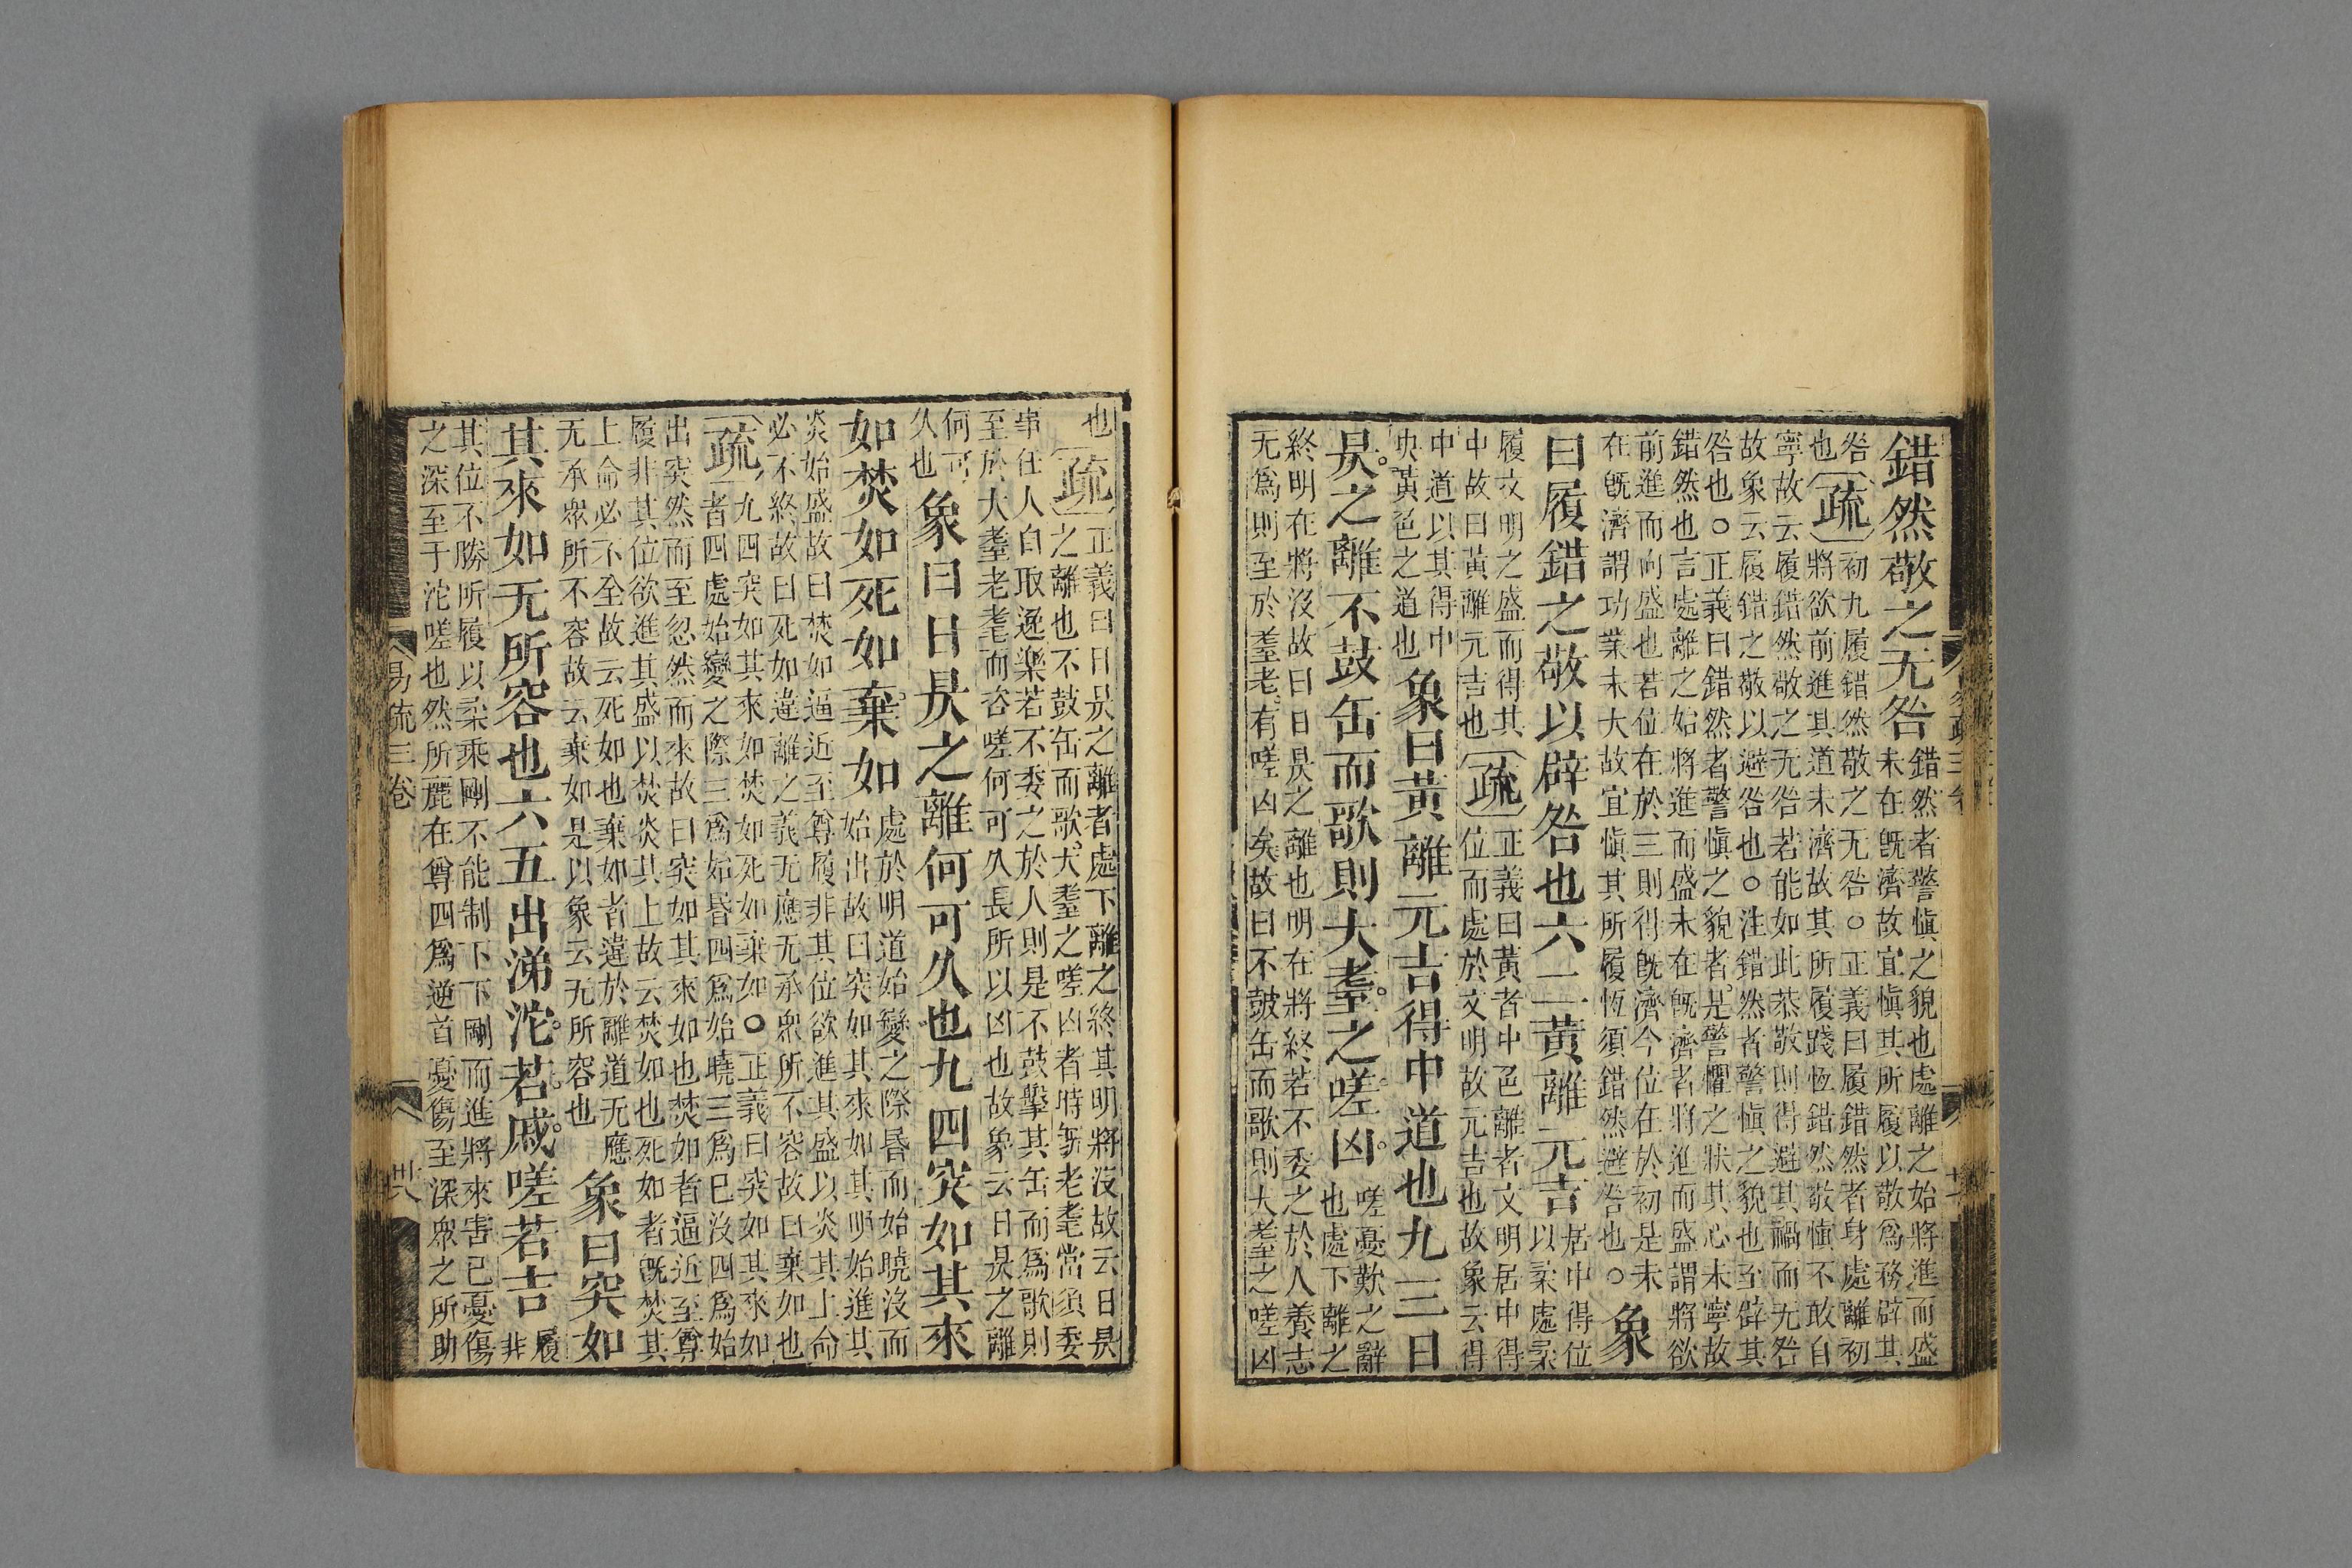 錯然敬之无咎
錯然者警愼之貌也處離之始將進而盛
未在旣濟故宜愼其所履以敬爲務辟其
咎
也
疏
初九履錯然敬之无咎○正義曰履錯然者身處離初
將欲前進其道未濟故其所履踐恆錯然敬愼不敢自
寧故云履錯然敬之无咎若能如此恭敬則得避其禍而无咎
故象云履錯之敬以避咎也○注錯然者警愼之貌也至辟其
咎也○正義曰錯然者警愼之貌者是警懼之狀其心未寧故
錯然也言處離之始將進而盛未在旣濟者將進而盛謂將欲
前進而向盛也若位在於三則得旣濟今位在於初是未
在旣濟謂功業未大故宜愼其所履恆須錯然避咎也○
象
曰履錯之敬以辟咎也六二黃離元吉
居中得位
以柔處柔
履文明之盛而得其
中故曰黃離元吉也
疏
正義曰黃者中色離者文明居中得
位而處於文明故元吉也故象云得
中道以其得中
央黃色之道也
象曰黃離元吉得中道也九三日
昃之離不鼓缶而歌則大耋之嗟凶
嗟憂歎之辭
也處下離之
終明在將沒故曰日昃之離也明在將終若不委之於人養志
无爲則至於耋老有嗟凶矣故曰不鼓缶而歌則大耋之嗟凶
也
疏
正義曰日昃之離者處下離之終其明將沒故云日昃
之離也不鼓缶而歌大耋之嗟凶者時旣老耄當須委
事任人自取逸樂若不委之於人則是不鼓擊其缶而爲歌則
至於大耋老耄而咨嗟何可久長所以凶也故象云日昃之離
何可
久也
象曰日昃之離何可久也九四突如其來
如焚如死如棄如
處於明道始變之際昏而始曉沒而
始出故曰突如其來如其明始進其
炎始盛故曰焚如逼近至尊履非其位欲進其盛以炎其上命
必不終故曰死如違離之義无應无承眾所不容故曰棄如也
疏
九四突如其來如焚如死如棄如○正義曰突如其來如
者四處始變之際三爲始昏四爲始曉三爲已沒四爲始
出突然而至忽然而來故曰突如其來如也焚如者逼近至尊
履非其位欲進其盛以焚炎其上故云焚如也死如者旣焚其
上命必不全故云死如也棄如者違於離道无應
无承眾所不容故云棄如是以象云无所容也
象曰突如
其來如无所容也六五出涕沱若戚嗟若吉
履
非
其位不勝所履以柔乘剛不能制下下剛而進將來害己憂傷
之深至于沱嗟也然所麗在尊四爲逆首憂傷至深眾之所助
易疏三卷
廿八